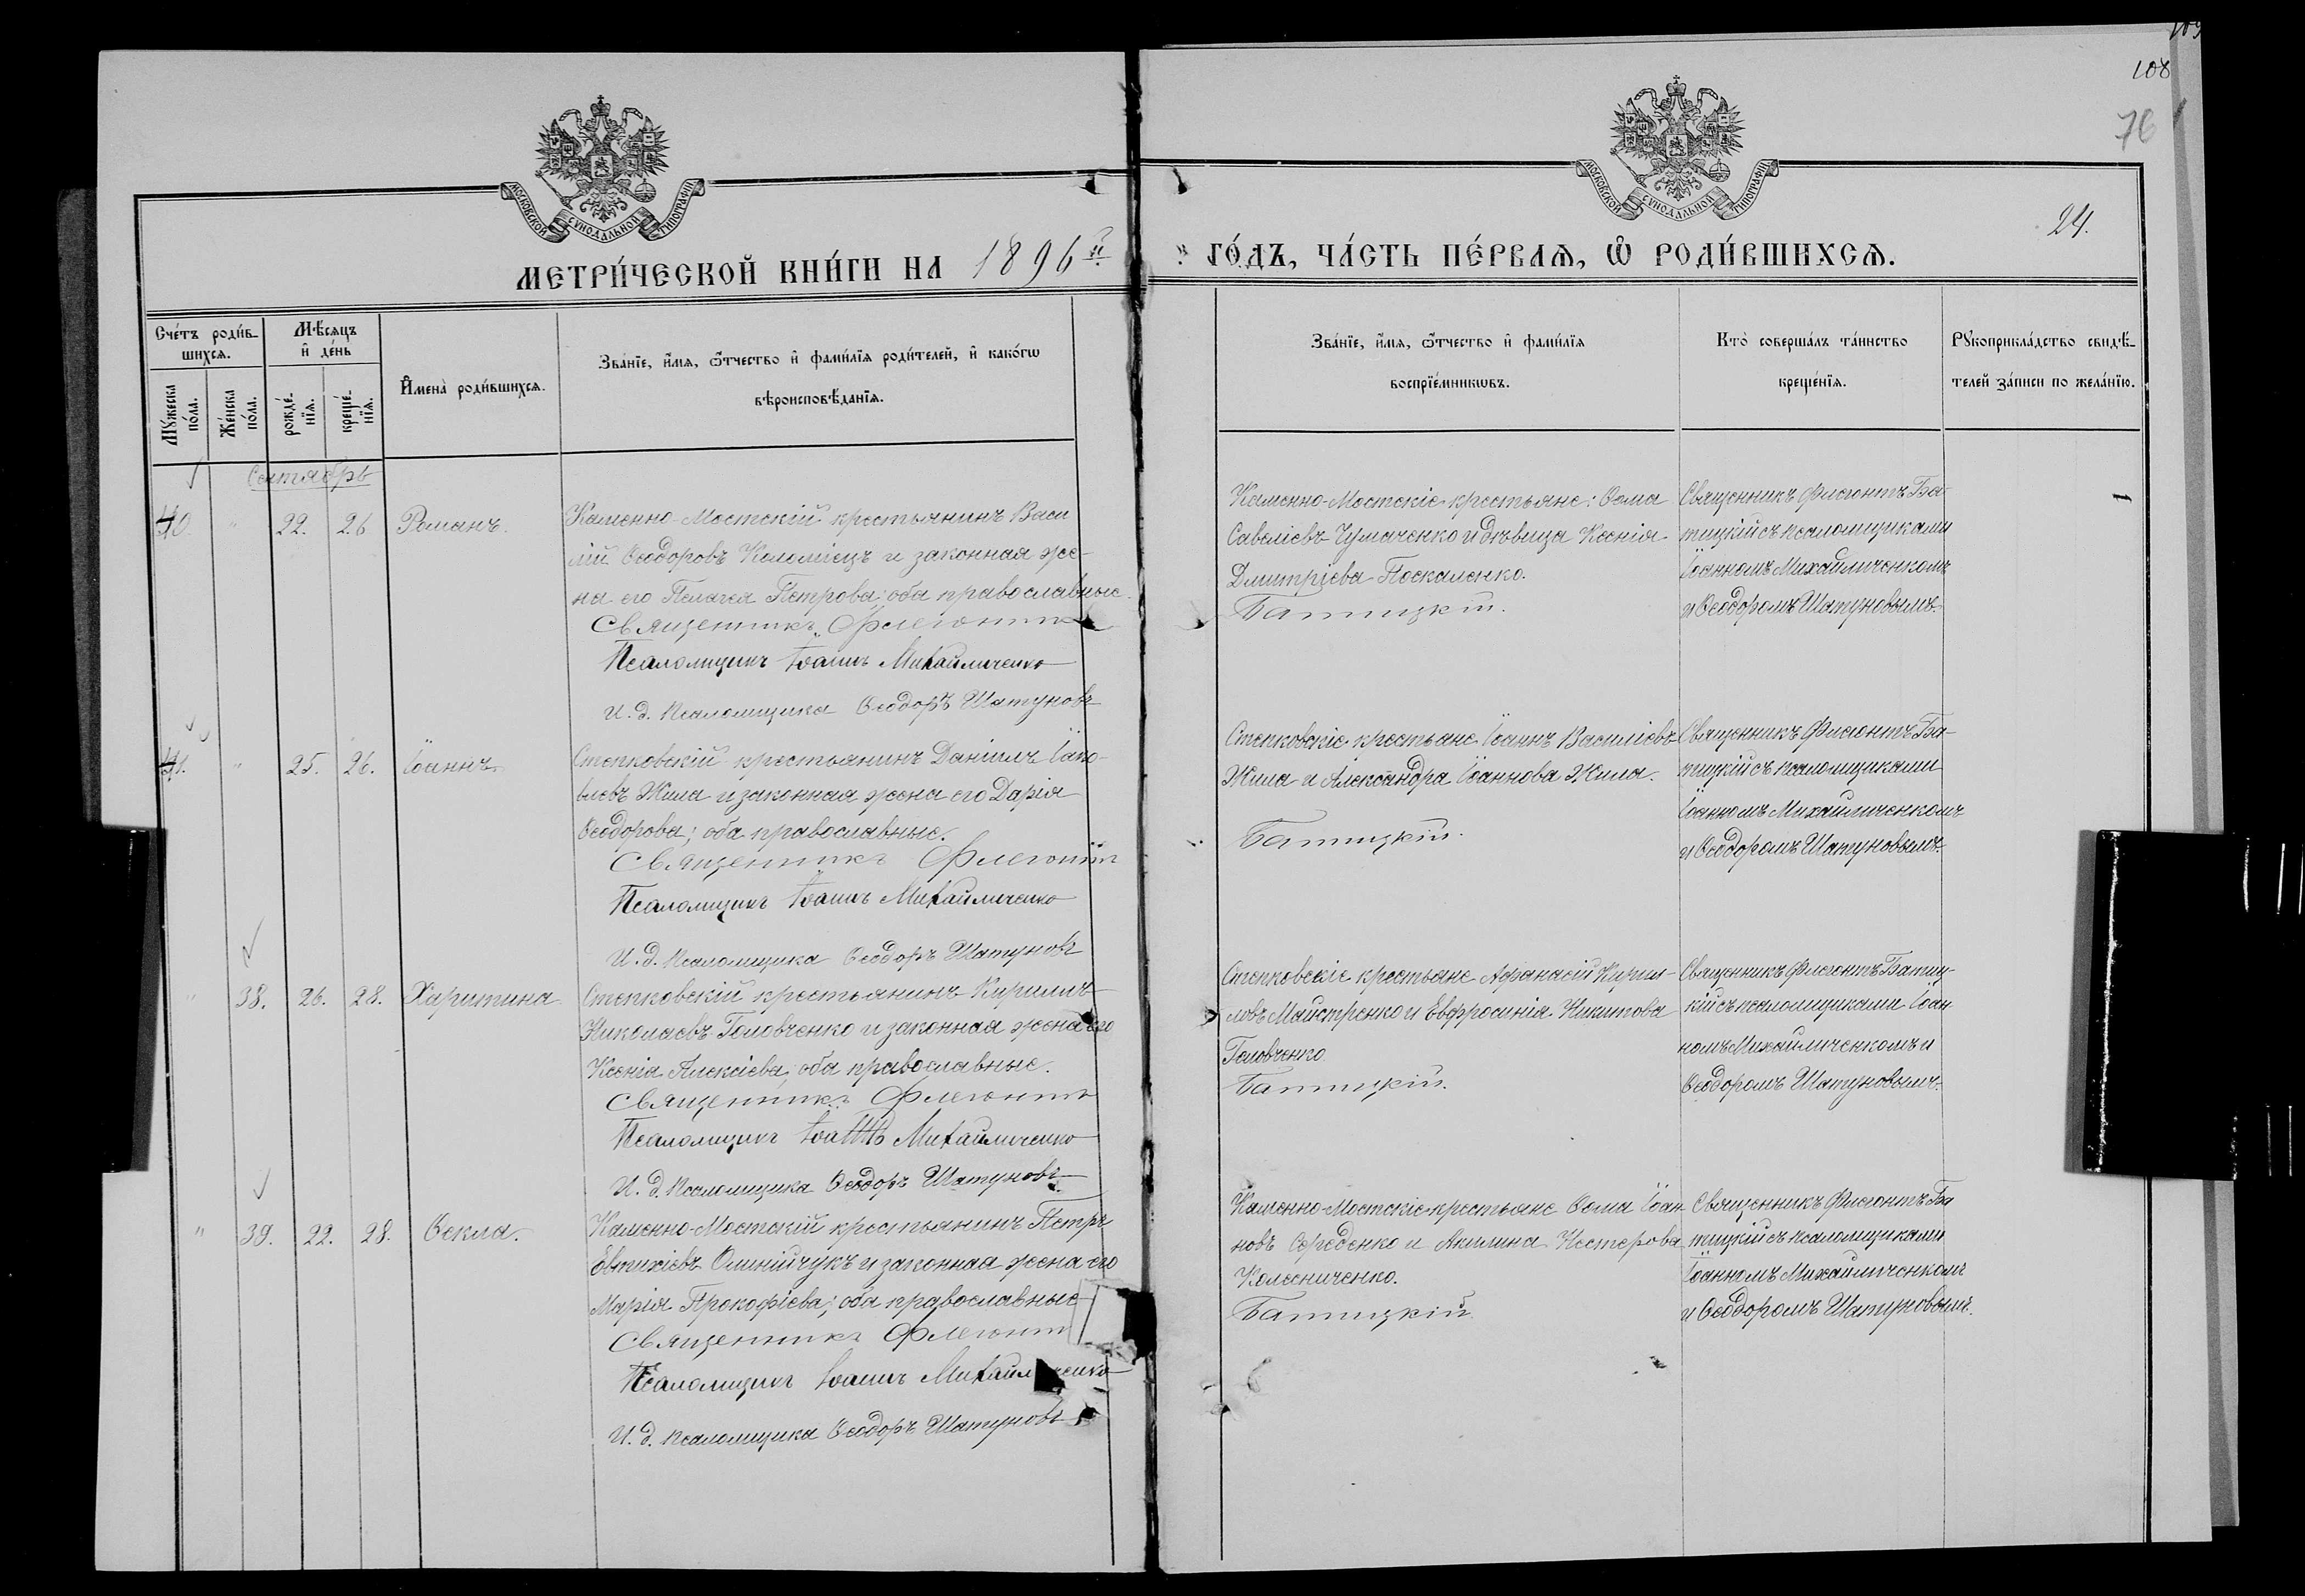 108
76
МОСКОВСКОЙ СѴНОДАЛЬНОЙ ТИПОГРАФІИ
МОСКОВСКОЙ СѴНОДАЛЬНОЙ ТИПОГРАФІИ
24.
МЕТРИ́ЧЕСКОЙ КНИ́ГИ НА 1896й ГО́ДЪ, ЧА́СТЬ ПЕ́РВАѦ, Ѡ РОДИ́ВШИХСѦ.
Сче́тъ роди́в-
шихсѧ.
Мѣ́сѧцъ
и де́нь
Мꙋ́жеска
по́ла.
Же́нска
по́ла.
рожде́-
нїѧ.
креще́-
нїѧ.
Имена̀ роди́вшихсѧ.
Зва́нїе, и́мѧ, ѻ҆́тчество и фами́лїѧ роди́телей, и како́гѡ
вѣроисповѣ́данїѧ.
Зва́нїе, и́мѧ, ѻ҆́тчество и фами́лїѧ
воспрїе́мникѡвъ.
Кто̀ соверша́лъ та́инство
креще́нїѧ.
Рꙋкоприкла́дство свидѣ́-
телей за́писи по жела́нїю.
Сентябрь
40. " 22. 26 Романъ.
Каменно-Мостскій крестьянинъ Васи
лій Ѳеодоровъ Коломіецъ и законная же-
на его Пелагея Петрова; оба православные.
Священникъ Флегонтъ
Псаломщикъ Іоаннъ Михайличенко
И. д. псаломщика Ѳеодоръ Шатуновъ
Каменно-Мостскіе крестьяне: Ѳома
Савеліевъ Чумаченко и дѣвица Ксенія
Дмитріева Поскаленко.
Батицкій.
Священникъ Флегонтъ Ба-
тицкій съ псаломщиками
Іоанномъ Михайличенкомъ
и Ѳеодоромъ Шатуновымъ.
41. " 25. 26. Іоаннъ.
Степковскій крестьянинъ Даніилъ Іако-
влевъ Жила и законная жена его Дарія
Ѳеодорова; оба православные.
Священникъ Флегонтъ
Псаломщикъ Іоаннъ Михайличенко
И. д. псаломщика Ѳеодоръ Шатуновъ
Степковскіе крестьяне Іоаннъ Василіевъ
Жила и Александра Іоаннова Жила.
Батицкій.
Священникъ Флегонтъ Ба-
тицкій съ псаломщиками
Іоанномъ Михайличенкомъ
и Ѳеодоромъ Шатуновымъ.
" 38. 26. 28. Харитина
Степковскій крестьянинъ Кириллъ
Николаевъ Головченко и законная жена его
Ксенія Алексіева; оба православные.
Священникъ Флегонтъ
Псаломщикъ Іоаннъ Михайличенко
И. д. псаломщика Ѳеодоръ Шатуновъ
Степковскіе крестьяне Афанасій Кирил-
ловъ Майстренко и Евфросинія Никитова
Головченко
Батицкій.
Священникъ Флегонтъ Батиц-
кій съ псаломщиками Іоан
номъ Михайличенкомъ и
Ѳеодоромъ Шатуновымъ.
" 39. 22. 28. Ѳекла.
Каменно-Мостскій крестьянинъ Петръ
Евтихіевъ Олинійчукъ и законная жена его
Марія Прокофіева; оба православные
Священникъ Флегонтъ
Псаломщикъ Іоаннъ Михайличенко
И. д. псаломщика Ѳеодоръ Шатуновъ
Каменно-Мостскіе крестьяне Ѳома Іоан
новъ Середенко и Акилина Нестерова
Колесниченко.
Батицкій
Священникъ Флегонтъ Ба
тицкій съ псаломщиками
Іоанномъ Михайличенкомъ
и Ѳеодоромъ Шатуновымъ.